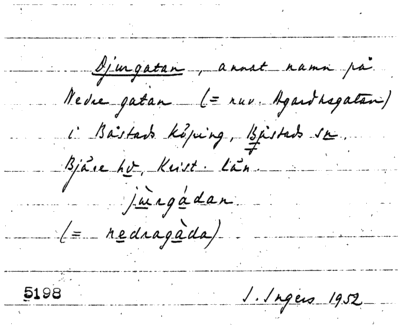 Djurgatan, annat namn på
Nedre gatan (= nuv. Agardhsgatan)
i Båstads köping, Båstads sn.
Bjäre hd, Krist. län.
jùrgádan
(= nedragàda)
5198 I. Ingers 1952